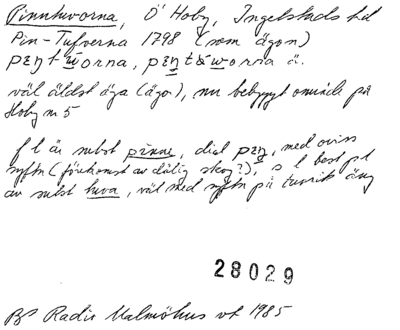 Pinntuvorna, Ö Hoby, Ingelstads hd
Pin-Tufverna 1798 (som ägor)
väl äldst äga (ägor), nu bebyggt område på
Hoby nr 5
f l är subst pinne, dial med oviss
syftn (förekomst av dålig skog?), s l best pl
av subst tuva, väl med syftn på tuvrik äng
28029
BP Radis Malmöhus vt 1985